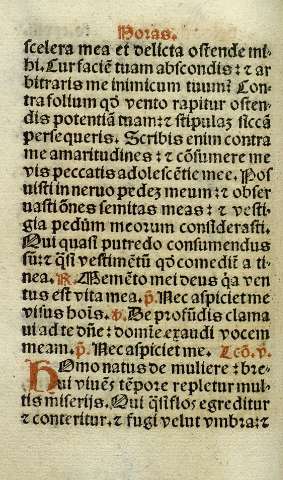 Horas.
scelera mea et delicta ostende mi-
hi. Cur faciē tuam abscondis: ⁊ ar
bitraris me inimicum tuum? Con
tra folium qd̄ vento rapitur osten-
dis potentiā tuam: ⁊ stipulaʒ siccā
persequeris. Scribis enim contra
me amaritudines: ⁊ cōsumere me
vis peccatis adolescētie mee. Pos
uisti in neruo pedeʒ meum: ⁊ obser
uasti ōnes semitas meas: ⁊ vesti-
gia pedūm meorum considerasti.
Qui quasi putredo consumendus
sū: ⁊ qsi vestimētū qd̄ comediť a ti-
nea. ℟. Memēto mei deus qa ven
tus est vita mea. p̄. Nec aspiciet me
visus hoīs. ℣. De profūdis clama
ui ad te dn̄e: domīe exaudi vocem
meam. p̄. Nec aspiciet me. Lcō. v.
Homo natus de muliere: bre-
ui viuēs tēpore repletur mul-
tis miserijs. Qui qsi flos egreditur
⁊ conteritur. ⁊ fugi velut vmbra: ⁊